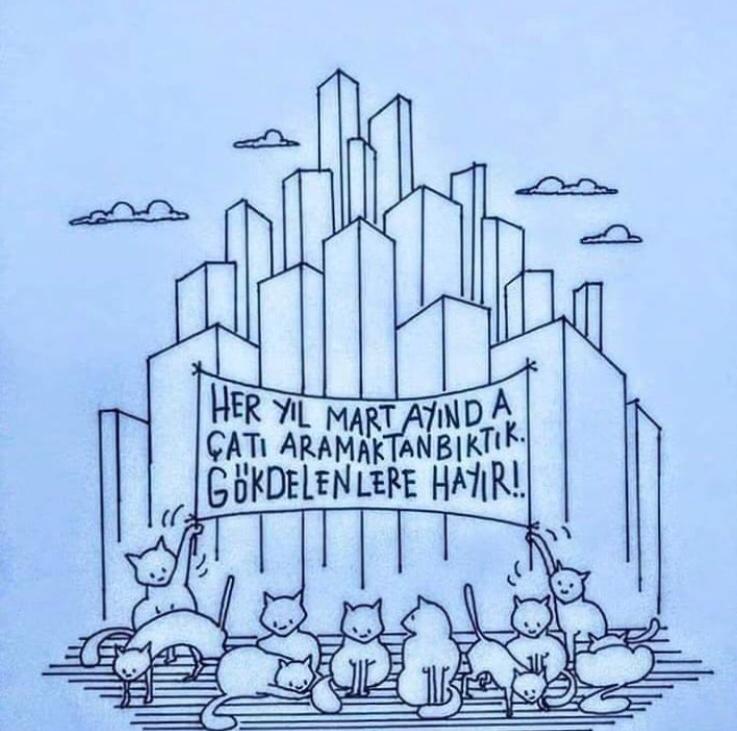 HER YIL MART AYINDA
ÇATI ARAMAKTAN BIKTIK.
GÖKDELENLERE HAYIR!.